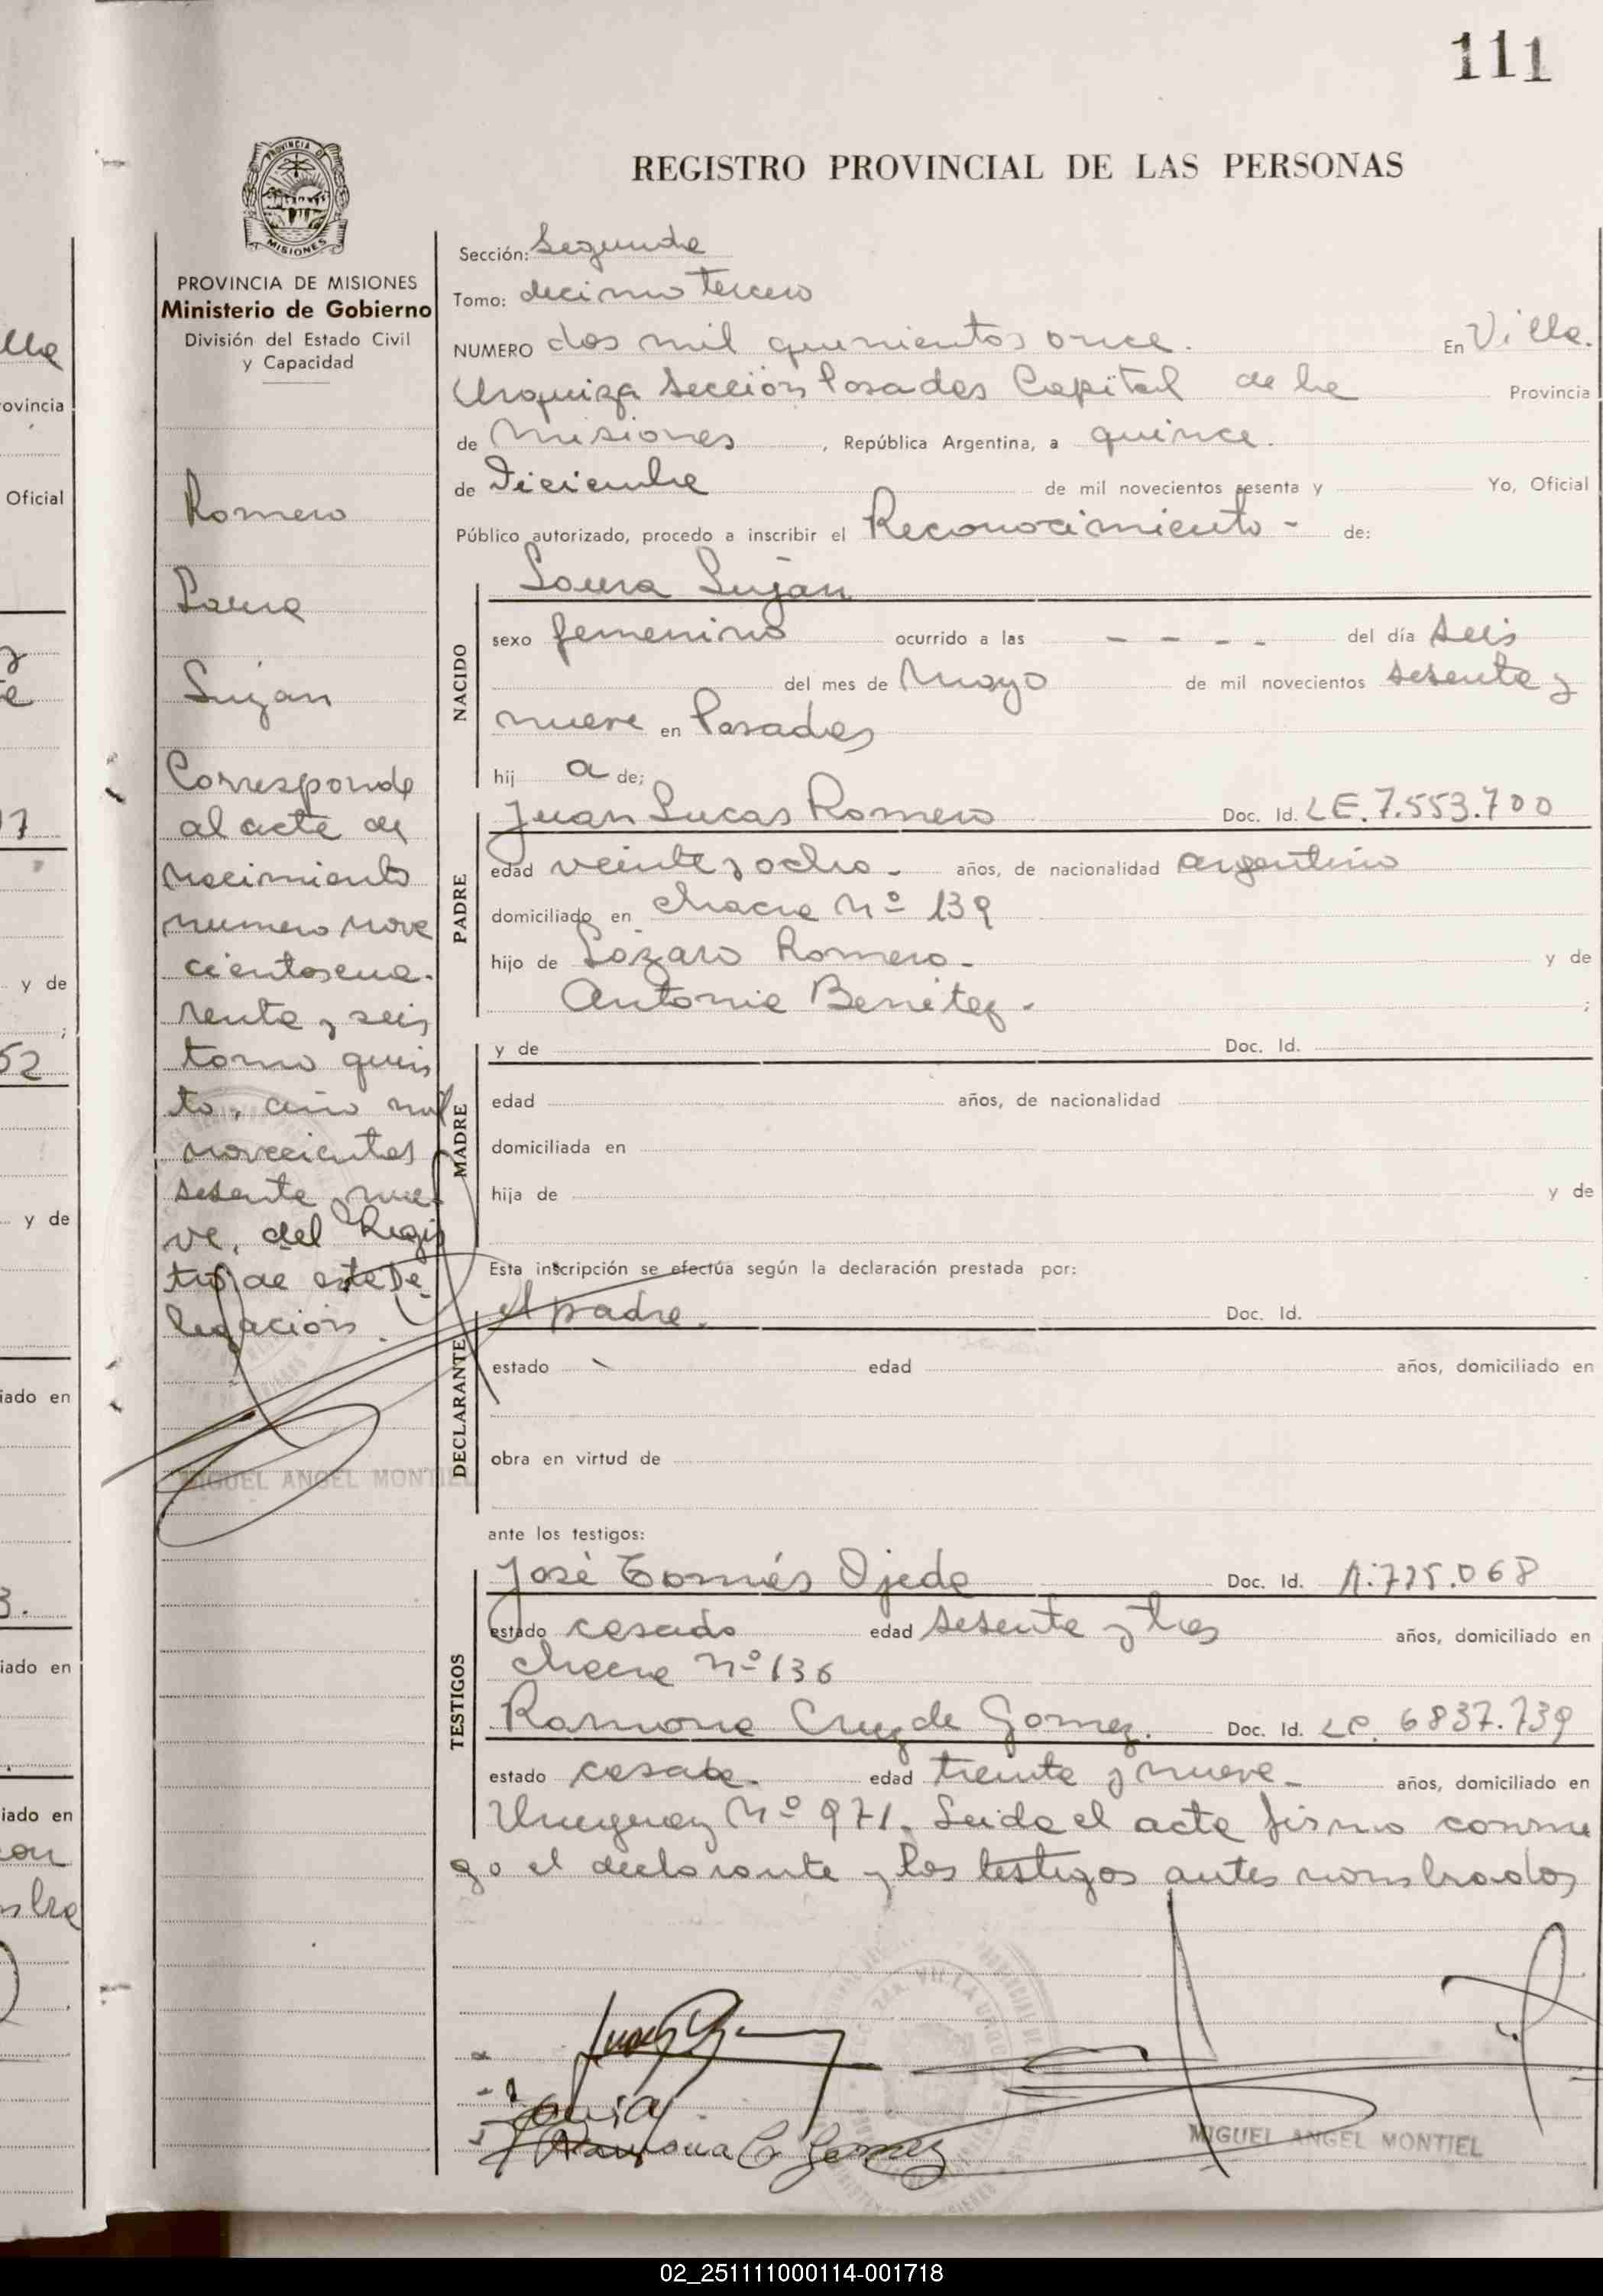 111
REGISTRO PROVINCIAL DE LAS PERSONAS
PROVINCIA DE MISIONES
Ministerio de Gobierno
División del Estado Civil
y Capacidad
Romero
Laura
Luján
Corresponde
al acta de
nacimiento
numero nove
cientos cua-
renta y seis
tomo quin
to, año mil
novecientos
sesenta y nue
ve, del Regis
tro de esta De
legación.
MIGUEL ANGEL MONTIEL
Sección: Segunda
Tomo: decimo tercero
NUMERO dos mil quinientos once. En Villa
Urquiza Sección Posadas Capital de la Provincia
de Misiones, República Argentina, a quince
de Diciembre de mil novecientos sesenta y Yo, Oficial
Público autorizado, procedo a inscribir el Reconocimiento - de:
Laura Luján
NACIDO
sexo femenino ocurrido a las - - - - del día seis
del mes de Mayo de mil novecientos sesenta y
nueve en Posadas
hij a de;
PADRE
Juan Lucas Romero Doc. Id. LE. 7.553.700
edad veinte y ocho - años, de nacionalidad argentino
domiciliado en chacra Nº 139
hijo de Lázaro Romero - y de
Antonia Benitez - ;
MADRE
y de Doc. Id.
edad años, de nacionalidad
domiciliada en
hija de y de
Esta inscripción se efectúa según la declaración prestada por:
DECLARANTE
el padre. Doc. Id.
estado edad años, domiciliado en
obra en virtud de
ante los testigos:
TESTIGOS
José Tomás Ojeda Doc. Id. 1.725.068
estado casado edad sesenta y tres años, domiciliado en
chacra nº 136
Ramona Cruz de Gomez. Doc. Id. LC. 6837.739
estado casada. edad treinta y nueve - años, domiciliado en
Uruguay Nº 971. Leida el acta firma conmi
go el declarante y los testigos antes nombrados
Ramona C. Gomez
MIGUEL ANGEL MONTIEL
02_251111000114-001718